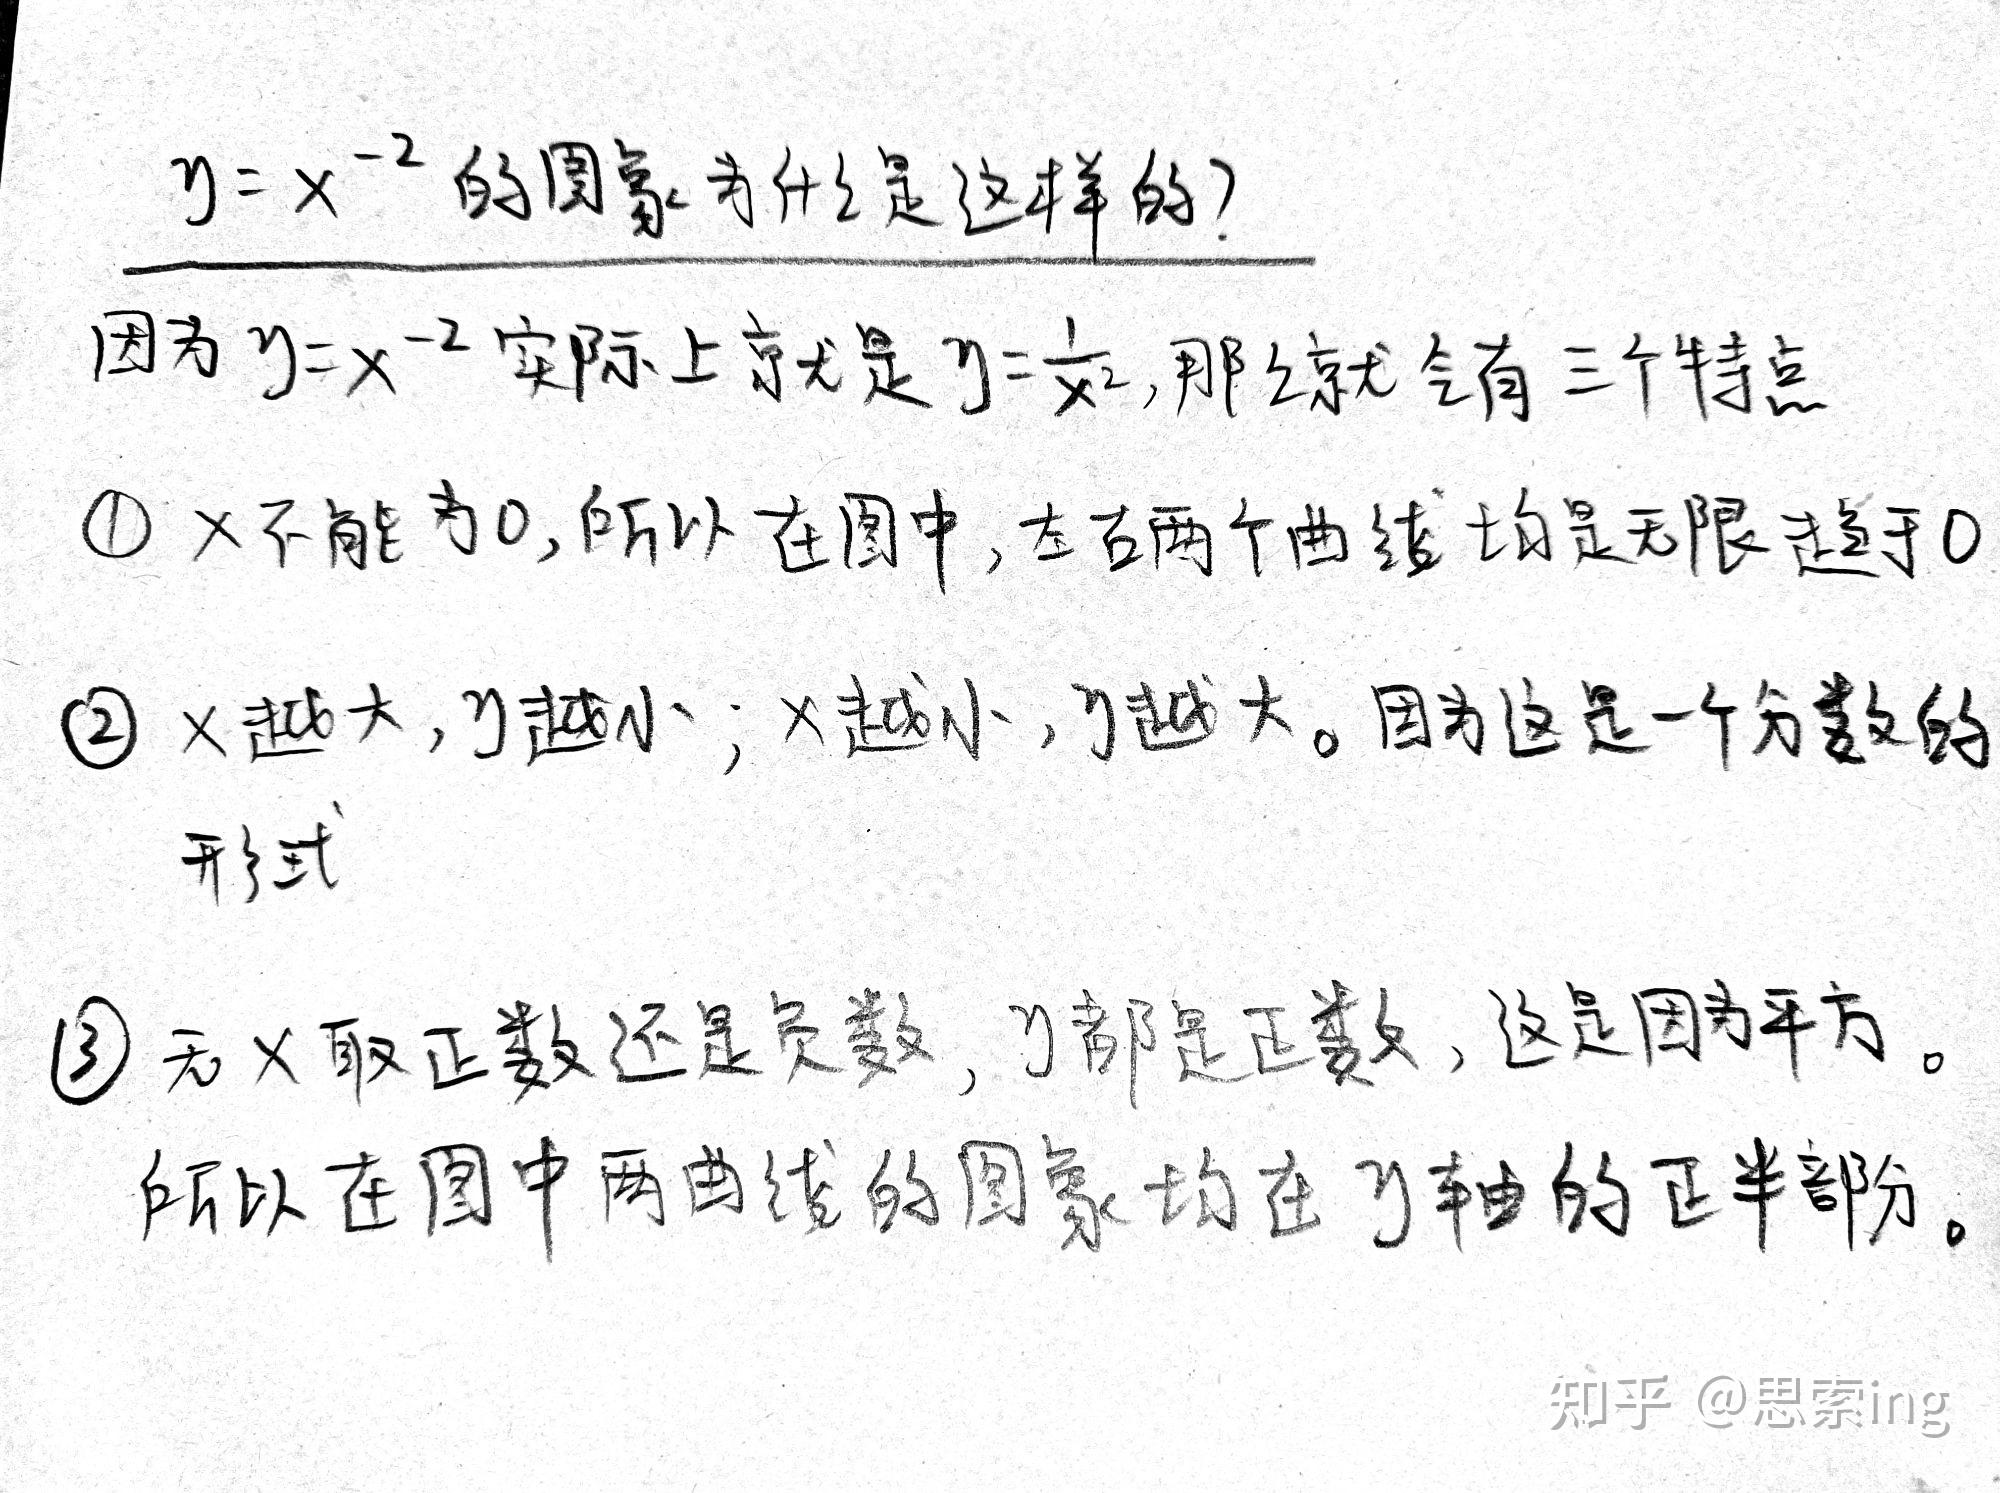 y=x⁻²的图象为什么是这样的?
因为y=x⁻²实际上就是y=1/x²,那么就会有三个特点
① x不能为0,所以在图中,左右两个曲线均是无限趋于0
② x越大,y越小;x越小,y越大。因为这是一个分数的
形式
③ 无x取正数还是负数,y都是正数,这是因为平方。
所以在图中两曲线的图象均在y轴的正半部分。
知乎 @思索ing